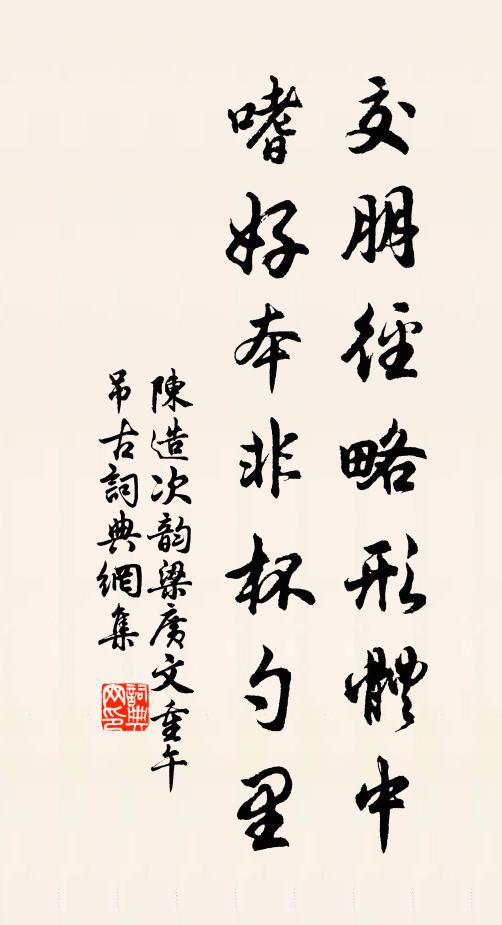 交朋徑略形體中
嗜好本非杯勺里
陳造次韵梁廣文重午
吊古詞典網集
詞典网印